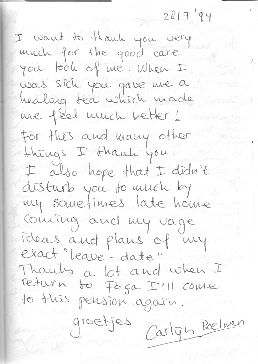 28/7 '94
I want to thank you very
much for the good care
you took of me. When I
was sick you gave me a
healing tea which made
me feel much better!
For this and many other
things I thank you
I also hope that I didn't
disturb you to much by
my sometimes late home
coming and my vage
ideas and plans of my
exact "leave-date"
Thanks a lot and when I
return to Foga I'll come
to this pension again.
groetjes
Carlijn